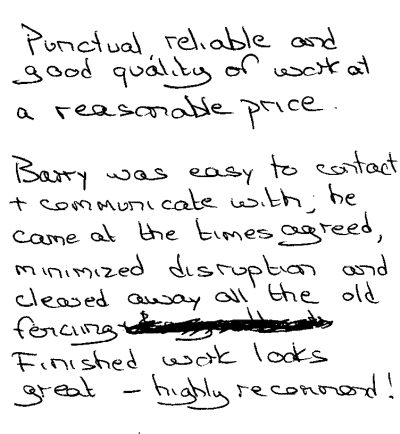 Punctual, reliable and
good quality of work at
a reasonable price.
Barry was easy to contact
+ communicate with, he
came at the times agreed,
minimized disruption and
cleared away all the old
fencing
Finished work looks
great - highly recommend!